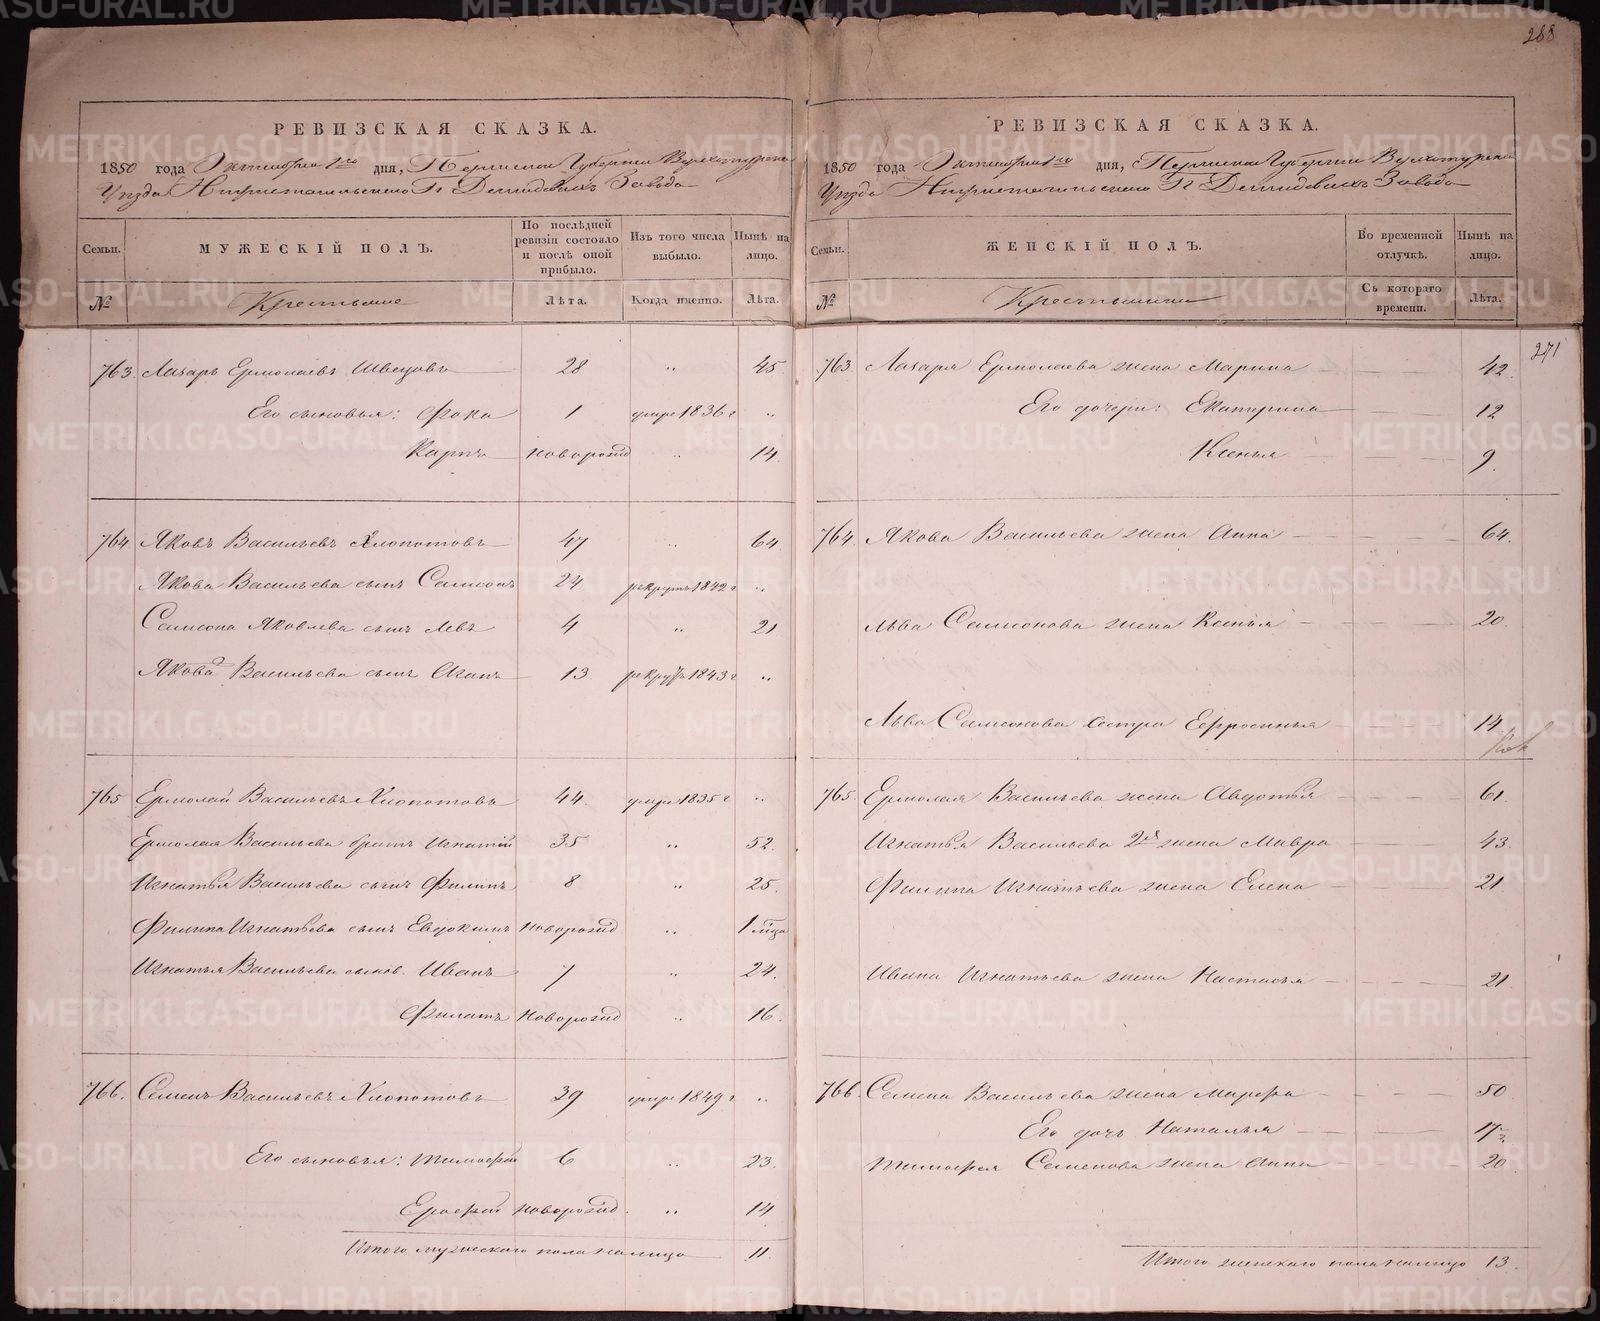 288
РЕВИЗСКАЯ СКАЗКА.
1850 года Октября 1го дня, Пермской Губернии Верхотурскаго
Уѣзда Нижнетагильскаго Гг Демидовыхъ Завода
Семьи.
МУЖЕСКІЙ ПОЛЪ.
По послѣдней ревизіи состояло и послѣ оной прибыло.
Изъ того числа выбыло.
Нынѣ на лицо.
№ Крестьяне Лѣта. Когда именно. Лѣта.
763. Лазарь Ермолаевъ Швецовъ 28 „ 45
Его сыновья: Фока 1 умре 1836 г „
Карпъ новорожд „ 14.
764 Яковъ Васильевъ Хлопотовъ 47 „ 64
Якова Васильева сынъ Самсонъ 24 рекрутъ 1842 г „
Самсона Яковлева сынъ Левъ 4 „ 21
Якова Васильева сынъ Агапъ 13. рекрутъ 1843 г „
765 Ермолай Васильевъ Хлопотовъ 44. умре 1835 г „
Ермолая Васильева братъ Игнатій 35 „ 52.
Игнатья Васильева сынъ Филипъ 8 „ 25.
Филипа Игнатьева сынъ Евдокимъ новорожд „ 1 мѣца
Игнатья Васильева сынов. Иванъ 7 „ 24.
Филатъ новорожд „ 16.
766. Семенъ Васильевъ Хлопотовъ 29 умре 1849 г „
Его сыновья: Тимофей 6 „ 23.
Ерофей новорожд. „ 14
Итого мужескаго пола на лицо 11.
РЕВИЗСКАЯ СКАЗКА.
1850 года Октября 1го дня, Пермской Губерніи Верхотурскаго
Уѣзда Нижнетагильскаго Гг Демидовыхъ Завода
Семьи.
ЖЕНСКІЙ ПОЛЪ.
Во временной отлучкѣ.
Нынѣ на лицо.
№ Крестьянки Съ котораго времени. Лѣта.
271
763 Лазаря Ермолаева жена Марина 42.
Его дочери: Екатерина 12
Ксенья 9.
764. Якова Васильева жена Анна 64.
Льва Самсонова жена Ксенья 20.
Льва Самсонова сестра Ефросинья 14
765. Ермолая Васильева жена Авдотья 61.
Игнатья Васильева 2я жена Мавра 43.
Филипа Игнатьева жена Елена 21.
Ивана Игнатьева жена Настасья 21
766. Семена Васильева жена Марфа 50.
Его дочь Наталья 17
Тимофея Семенова жена Анна 20.
Итого женскаго пола на лицо 13.
METRIKI.GASO-URAL.RU